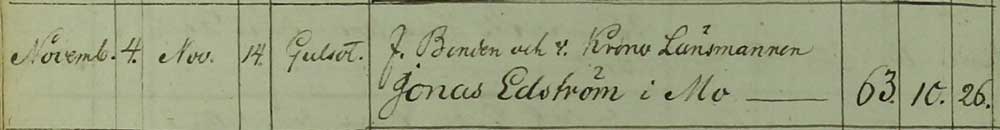 Novemb. 4. Nov. 14. Gulsot. f. Bonden och v. Krono Länsmannen
Jonas Edström i Mo — 63. 10. 26.